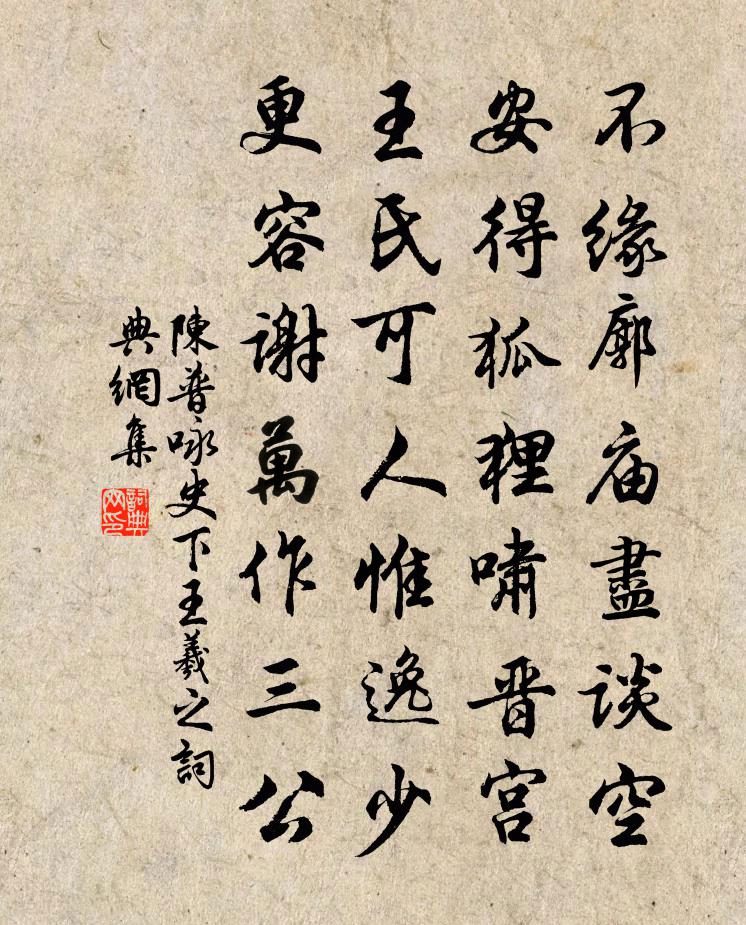 不緣廓庙盡談空
安得狐狸嘯晋宫
王氏可人惟逸少
更容謝萬作三公
陳普咏史下王羲之詞
典網集
詞典
网印